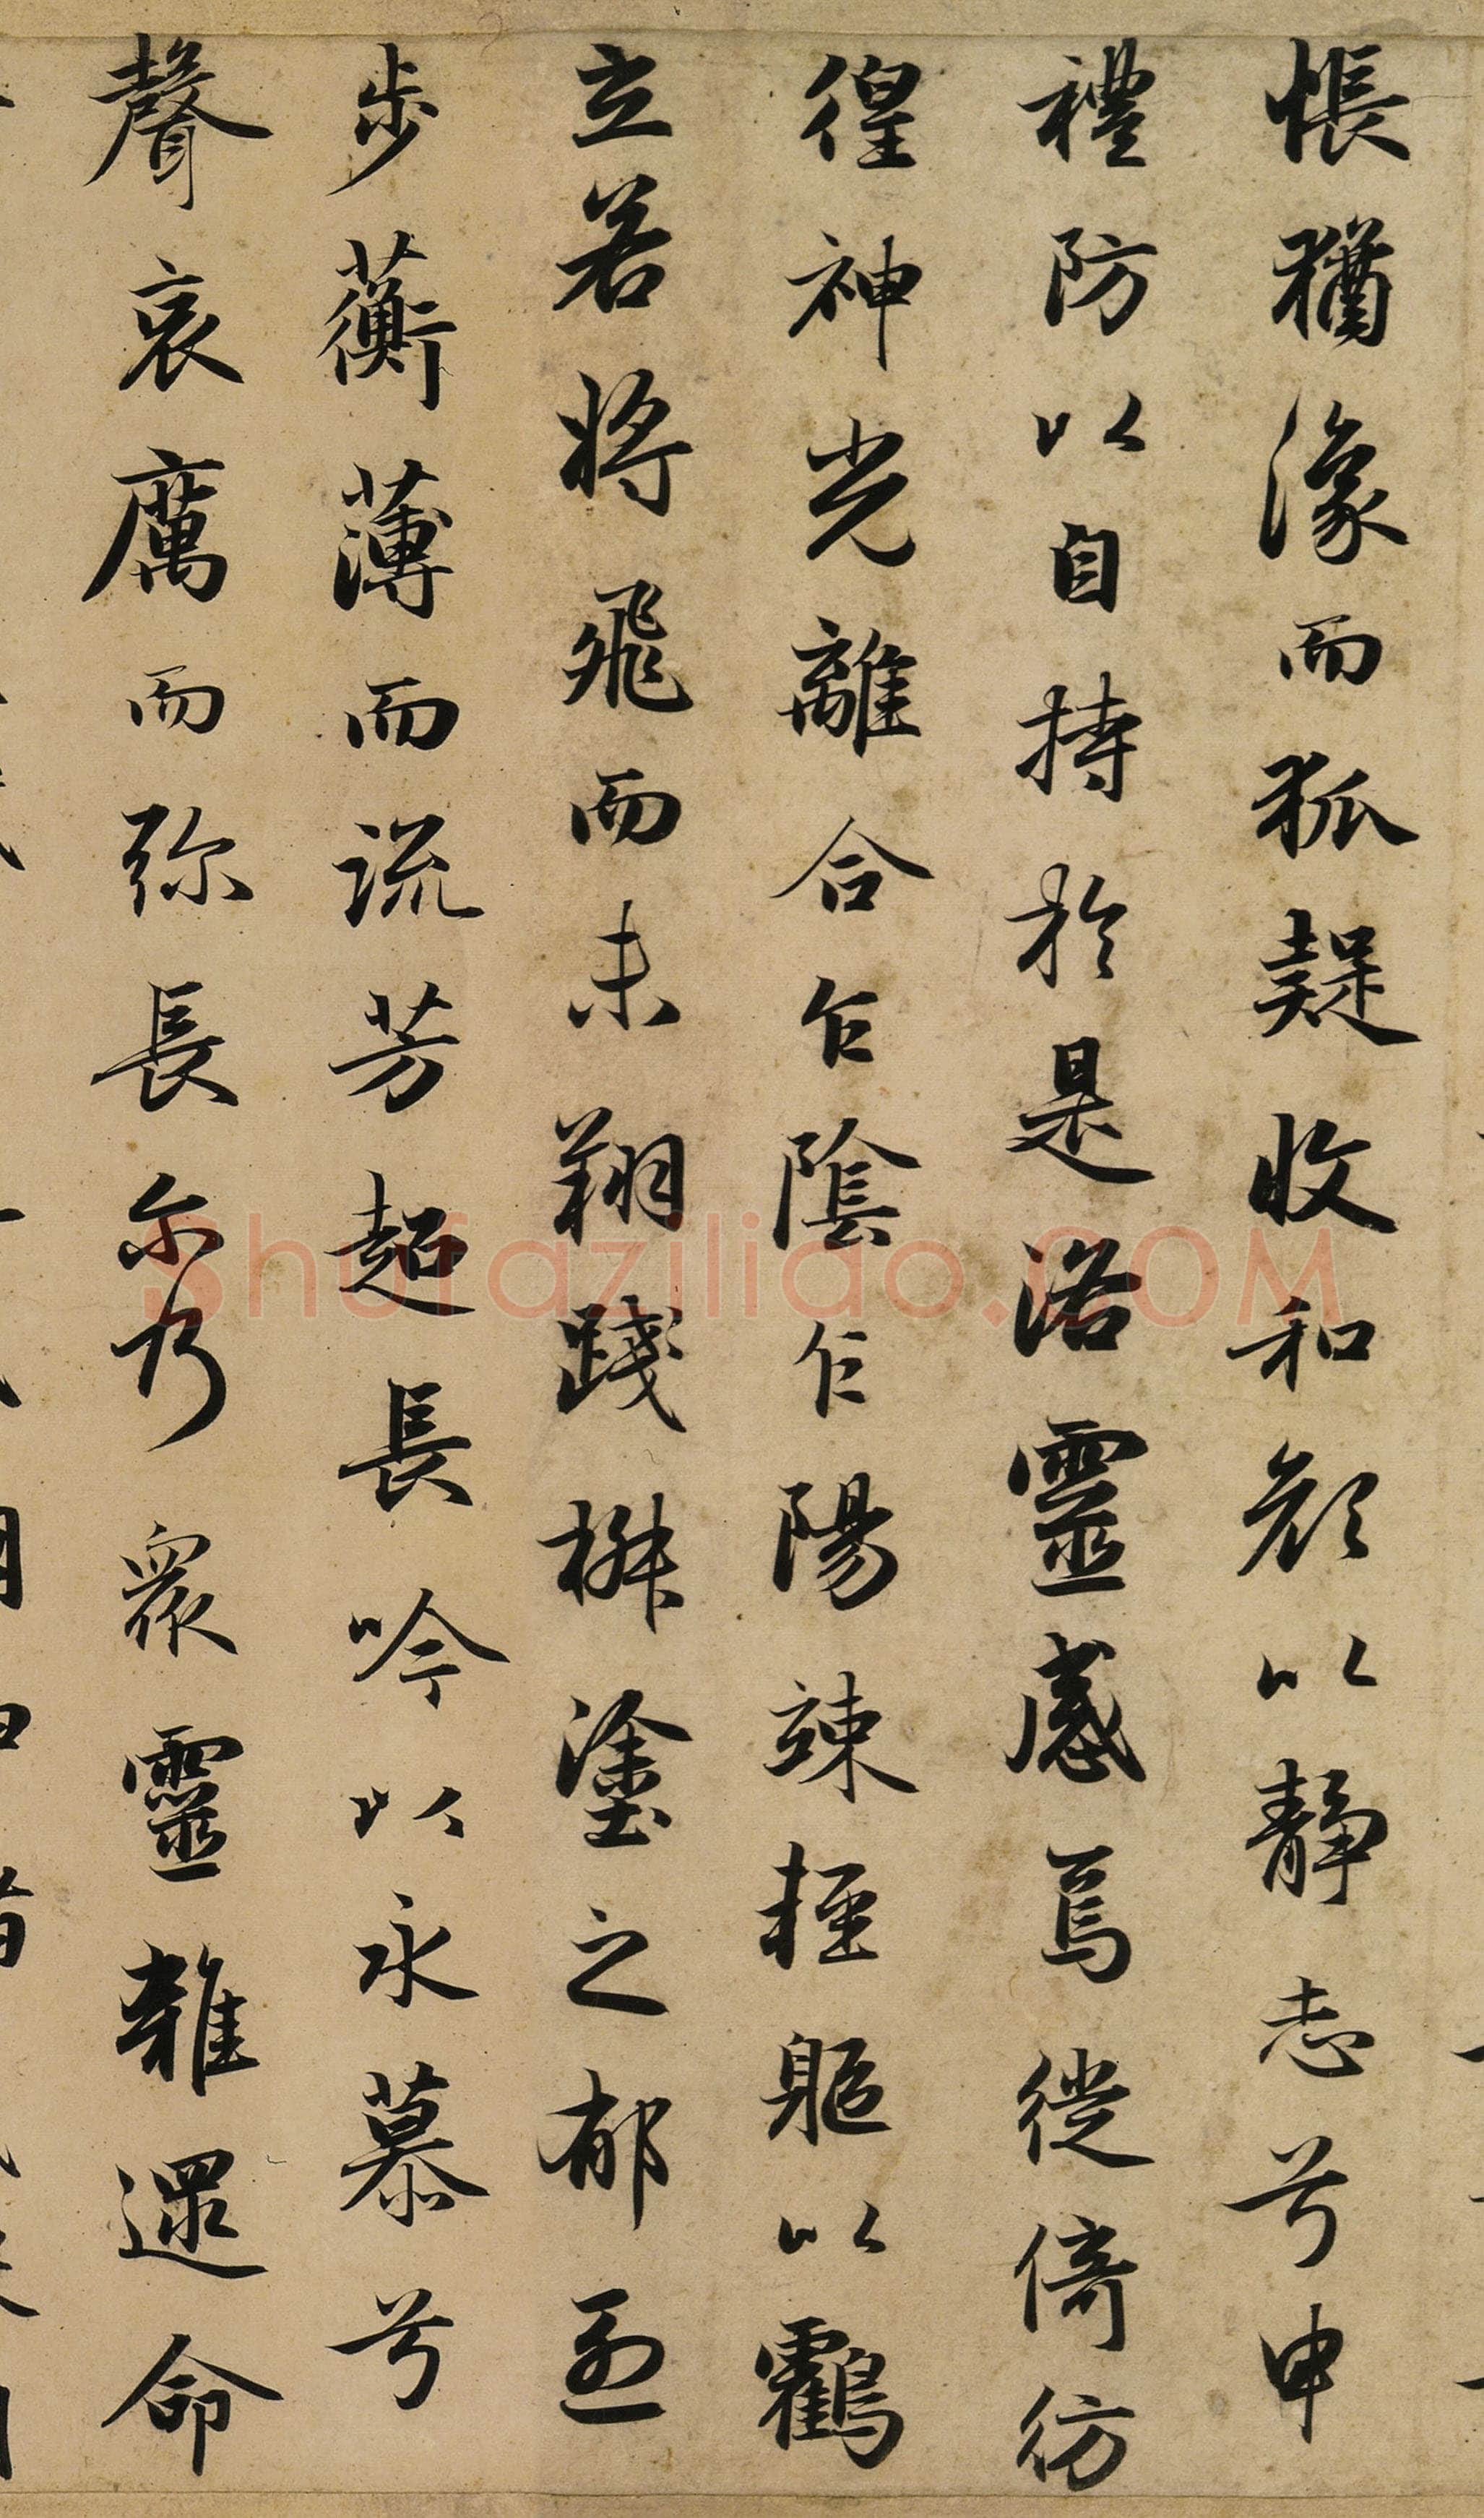 悵猶濠而狐疑收和顔以静志兮申
禮防以自持於是洛靈感焉徙倚彷
徨神光離合乍陰乍陽竦輕軀以鸖
立若将飛而未翔踐椒塗之郁烈
步蘅薄而流芳超長吟以永慕兮
聲哀厲而弥長尓乃衆靈雜遝命
Shufaziliao.COM